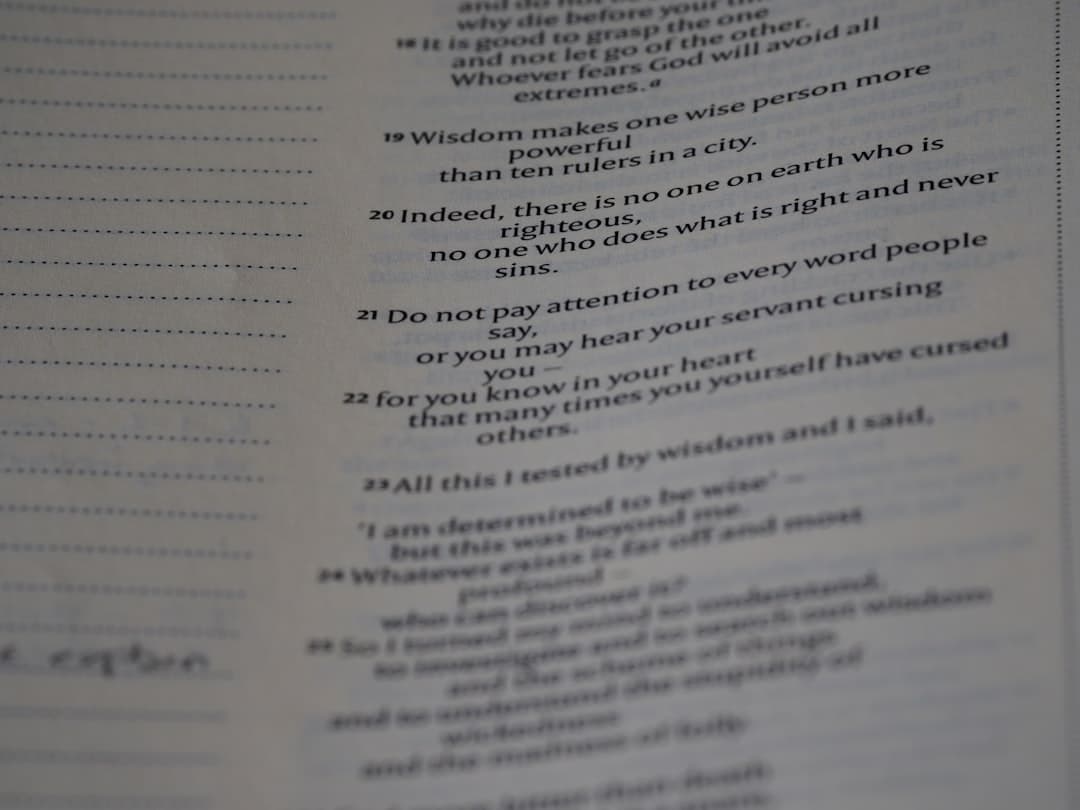 and do not
why die before your
18 It is good to grasp the one
and not let go of the other.
Whoever fears God will avoid all
extremes.a
19 Wisdom makes one wise person more
powerful
than ten rulers in a city.
20 Indeed, there is no one on earth who is
righteous,
no one who does what is right and never
sins.
21 Do not pay attention to every word people
say,
or you may hear your servant cursing
you –
22 for you know in your heart
that many times you yourself have cursed
others.
23 All this I tested by wisdom and I said,
'I am determined to be wise' –
but this was beyond me.
24 Whatever exists is far off and most
profound –
who can discover it?
25 So I turned my mind to understand,
to investigate and to search out wisdom
and the scheme of things
and to understand the stupidity of
wickedness
and the madness of folly.
explain